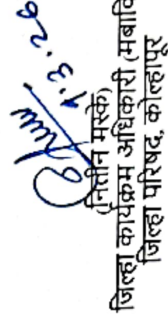 1.3.26
(नितीन मस्के)
जिल्हा कार्यक्रम अधिकारी (मबावि
जिल्हा परिषद, कोल्हापूर